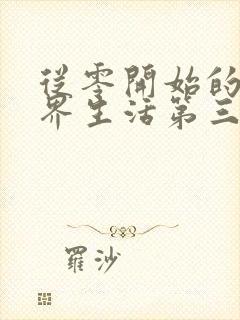 從零開始的
界生活第三
羅沙